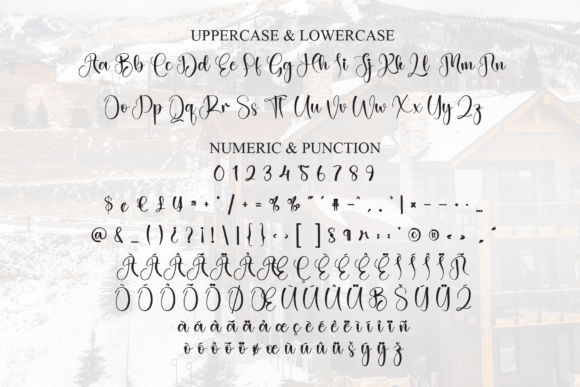 UPPERCASE & LOWERCASE
Aa Bb Cc Dd Ee Ff Gg Hh Ii Jj Kk Ll Mm Nn
Oo Pp Qq Rr Ss Tt Uu Vv Ww Xx Yy Zz
NUMERIC & PUNCTION
0 1 2 3 4 5 6 7 8 9
$ ¢ € £ ¥ ¤ + ° / + = % ‰ " ' # - ^ , . * | × − – — · · …
@ & _ ( ) ¿ ? ¡ ! \ | { } ‹ › [ ] § ¶ © ® « »
À Á Â Ã Ä Å Æ Ç È É Ê Ë Ì Í Î Ï Ñ
Ò Ó Ô Õ Ö Ø Œ Ù Ú Û Ü ß Š Ý Ÿ Ž
à á â ã ä å æ ç è é ê ë ì í î ï ñ
ò ó ô õ ö ø œ ù ú û ü š ý ÿ ž